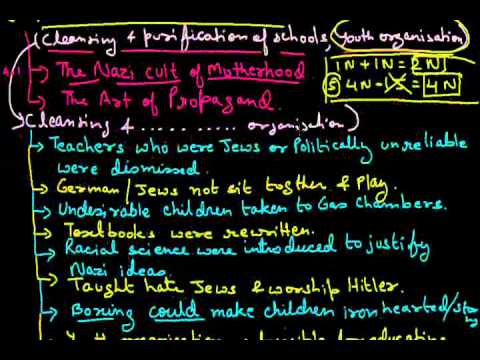 (Cleansing & purification of schools, Youth organisation)
1N + 1N = 2N
→ The Nazi cult of Motherhood
⑤ 4N - 1S = 4N
→ The Art of Propagand.
(Cleansing & .......... organisation)
→ Teachers who were Jews or Politically unreliable
were dismissed.
→ German / Jews not sit togther & Play.
→ Undesirable children taken to Gas Chambers.
→ Textbooks were rewritten.
→ Racial science were introduced to justify
Nazi ideas.
→ Taught hate Jews & worship Hitler.
→ Boxing could make children iron hearted/